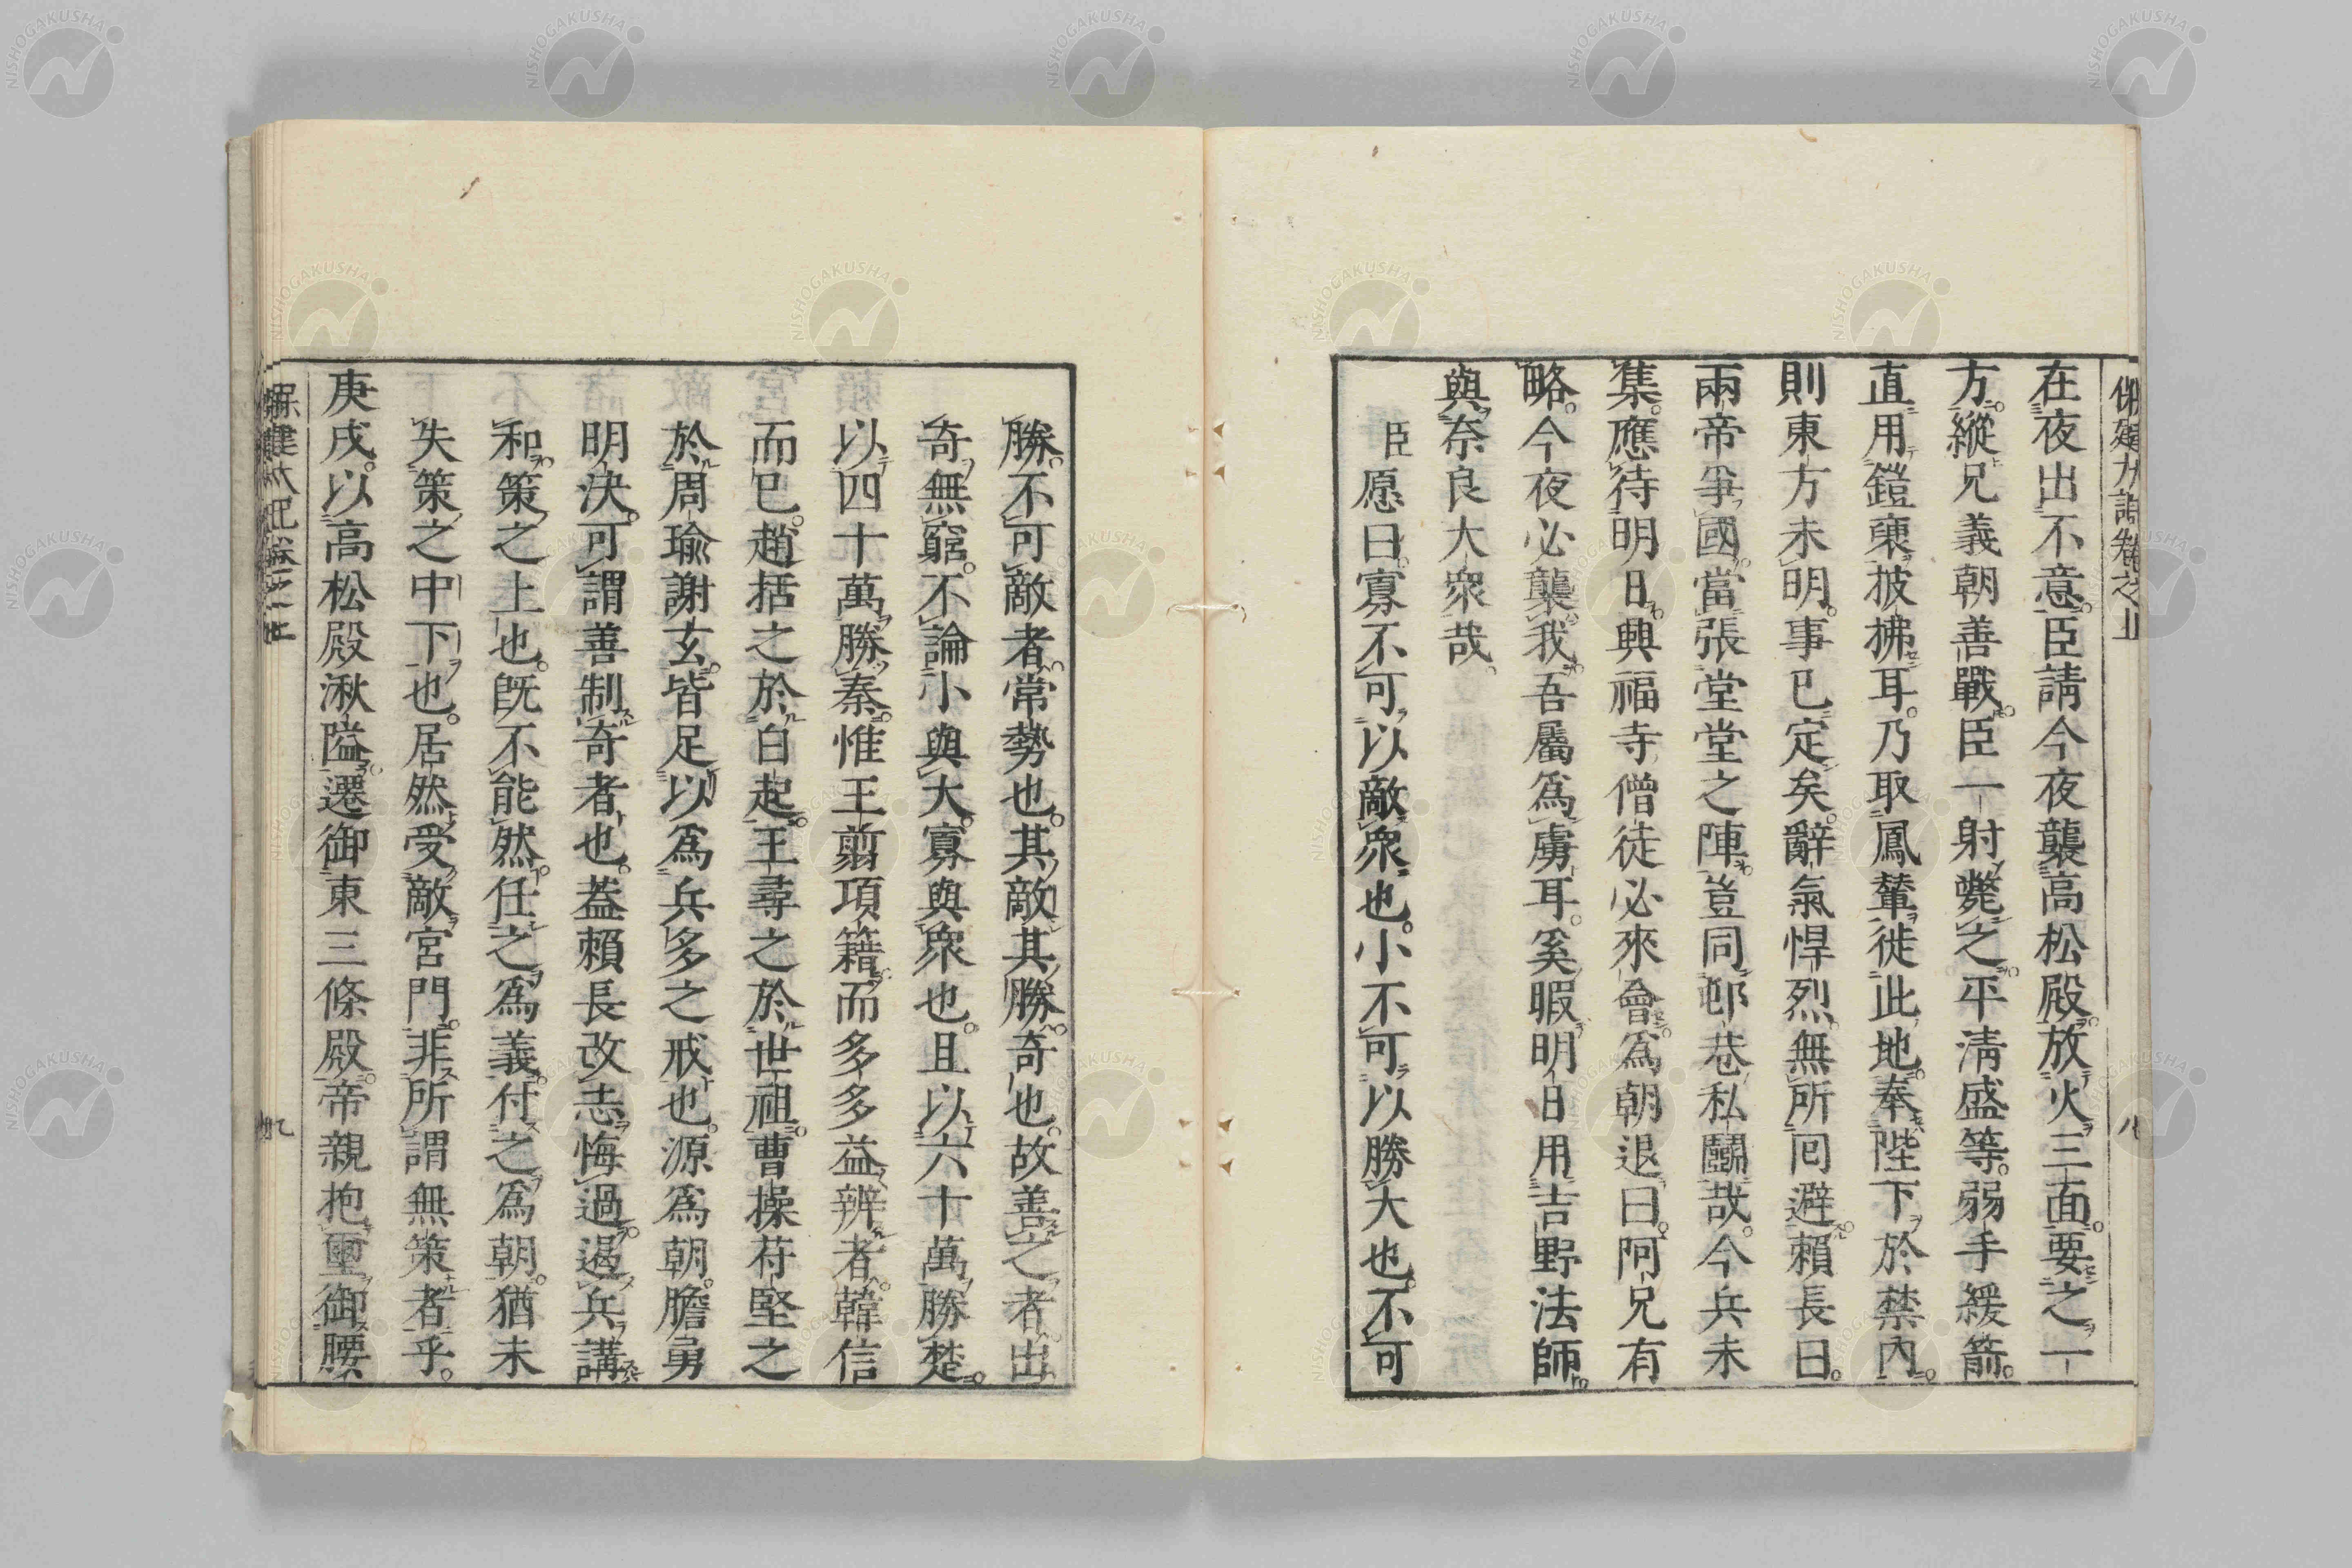 在夜出不意。臣請今夜襲高松殿。放火三面。要之一
方。縱兄義朝善戰。臣一射斃之。平淸盛等。弱手緩箭。
直用鎧𮖐披拂耳。乃取鳳輦徙此地。奉陛下於禁內。
則東方未明。事已定矣。辭氣悍烈。無所囘避。賴長曰。
兩帝爭國。當張堂堂之陣。豈同邸巷私鬪哉。今兵未
集。應待明日。興福寺僧徒必來會。爲朝退曰。阿兄有
略。今夜必襲我。吾屬爲虜耳。奚暇明日用吉野法師
與奈良大衆哉。
臣愿曰。寡不可以敵衆也。小不可以勝大也。不可
勝。不可敵者。常勢也。其敵其勝。奇也。故善之者。出
奇無窮。不論小與大。寡與衆也。且以六十萬勝楚。
以四十萬勝秦。惟王翦項籍。而多多益辨者。韓信
而已。趙括之於白起。王尋之於世祖。曹操苻堅之
於周瑜謝玄。皆足以爲兵多之戒也。源爲朝。膽勇
明決。可謂善制奇者也。蓋賴長改志悔過。遏兵講
和。策之上也。旣不能然。任之爲義。付之爲朝。猶未
失策之中下也。居然受敵宮門。非所謂無策者乎。
庚戌。以高松殿湫隘。遷御東三條殿。帝親抱璽御腰